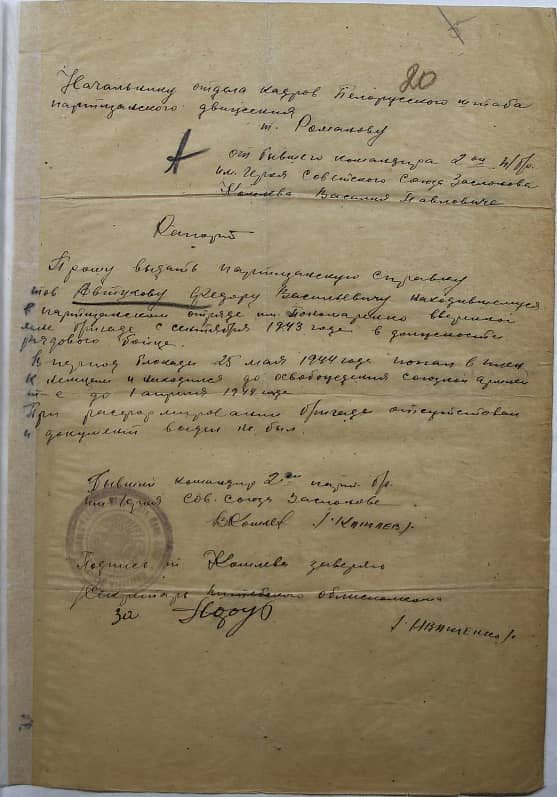 20
Начальнику отдела кадров Белорусского штаба
партизанского движения
т. Романову
от бывшего командира 2ой п/бр.
им. Героя Советского Союза Заслонова
Василия Павловича
Рапорт
Прошу выдать партизанскую справку
тов Автукову Федору Васильевичу находившемуся
в партизанском отряде им. Пономаренко вверенной
мне бригаде с сентября 1943 года в должности
рядового бойца.
В период блокады 25 мая 1944 года попал в плен
к немцам и находился до освобождения союзной армией
до 1 апреля года
При расформировании бригады отсутствовал
и документ выдан не был.
Бывший командир 2ой парт. бр.
им Героя Сов. Союза Заслонова
Подпись т. заверяю
Секретарь Витебского облисполкома
за
/Иващенко/.